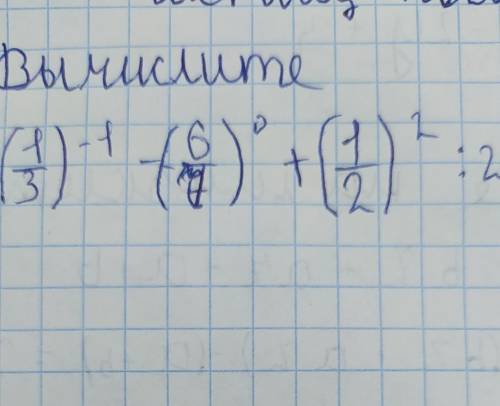 Вычислите
(1/3)^-1 - (6/7)^0 + (1/2)^2 : 2